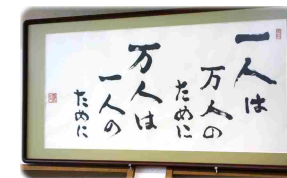 一人は
万人の
ために
万人は
一人の
ために